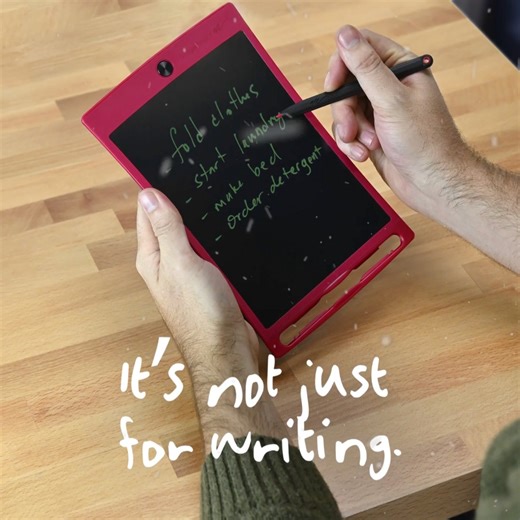 fold clothes
- start laundry
- make bed
- order detergent
It's not just
for writing.